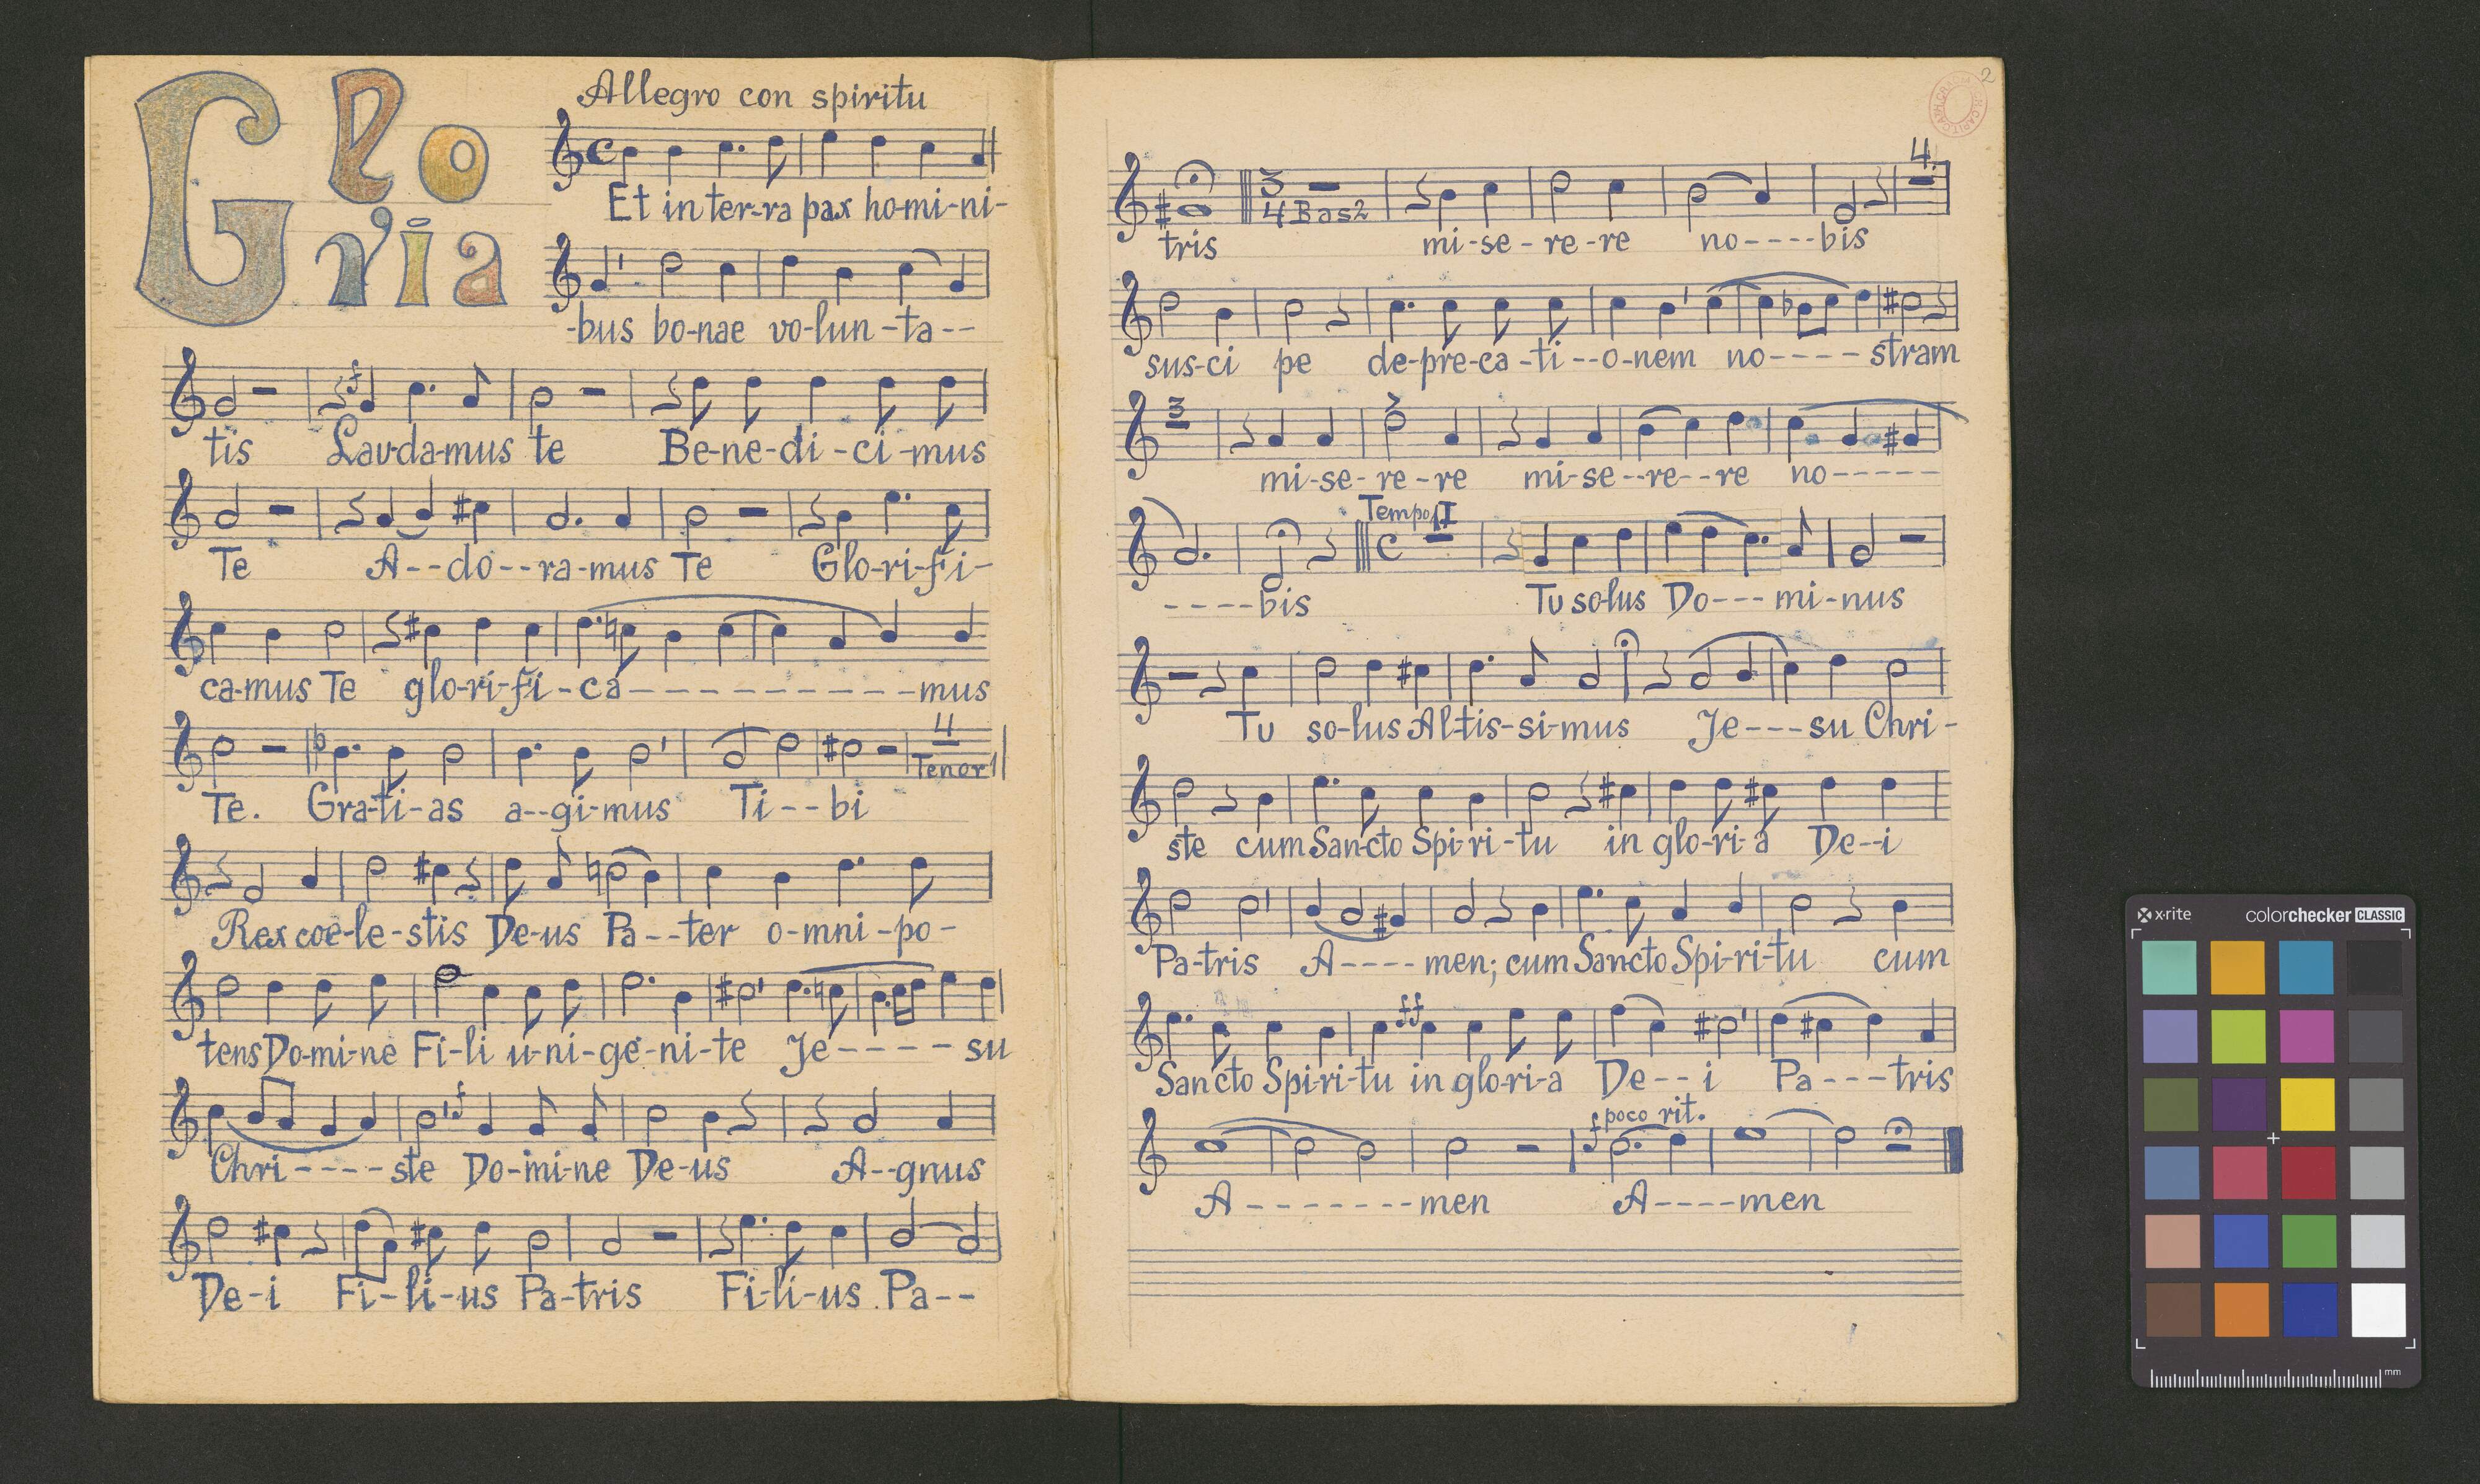 Gloria
Allegro con spiritu
Et in ter-ra pax ho-mi-ni-
-bus bo-nae vo-lun-ta--
tis Lau-da-mus te Be-ne-di-ci-mus
Te A--do--ra-mus Te Glo-ri-fi-
ca-mus Te glo-ri-fi-ca-----------mus
4
Tenor 1
Te. Gra-ti-as a--gi-mus Ti--bi
Rex coe-le-stis De-us Pa--ter o-mni-po-
tens Do-mi-ne Fi-li u-ni-ge-ni-te Je-----su
Chri----ste Do-mi-ne De-us A--gnus
De-i Fi-li-us Pa-tris Fi-li-us Pa--
2
4.
3
4 Bas 2
tris mi-se-re-re no----bis
sus-ci pe de-pre-ca-ti--o-nem no----stram
3
mi-se-re-re mi-se--re--re no-----
Tempo I
----bis Tu so-lus Do---mi-nus
Tu so-lus Al-tis-si-mus Je---su Chri-
ste cum San-cto Spi-ri-tu in glo-ri-a De--i
Pa-tris A----men; cum San-cto Spi-ri-tu cum
San-cto Spi-ri-tu in glo-ri-a De--i Pa---tris
f poco rit.
A-------men A----men
x-rite colorchecker CLASSIC
mm